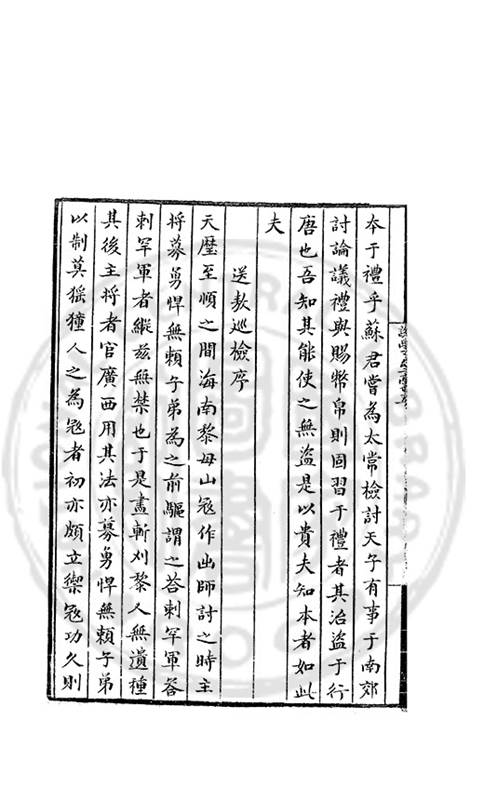 本于禮乎蘇君嘗為太常檢討天子有事于南郊
討論議禮與賜幣帛則固習于禮者其治盜于行
唐也吾知其能使之無盜是以貴夫知本者如此
夫
送敖巡檢序
天曆至順之間海南黎母山寇作出師討之時主
將募勇悍無賴子弟為之前驅謂之荅剌罕軍荅
剌罕軍者縱恣無禁也于是盡斬刈黎人無遺種
其後主將者官廣西用其法亦募勇悍無賴子弟
以制莫猺獞人之為寇者初亦頗立禦寇功久則